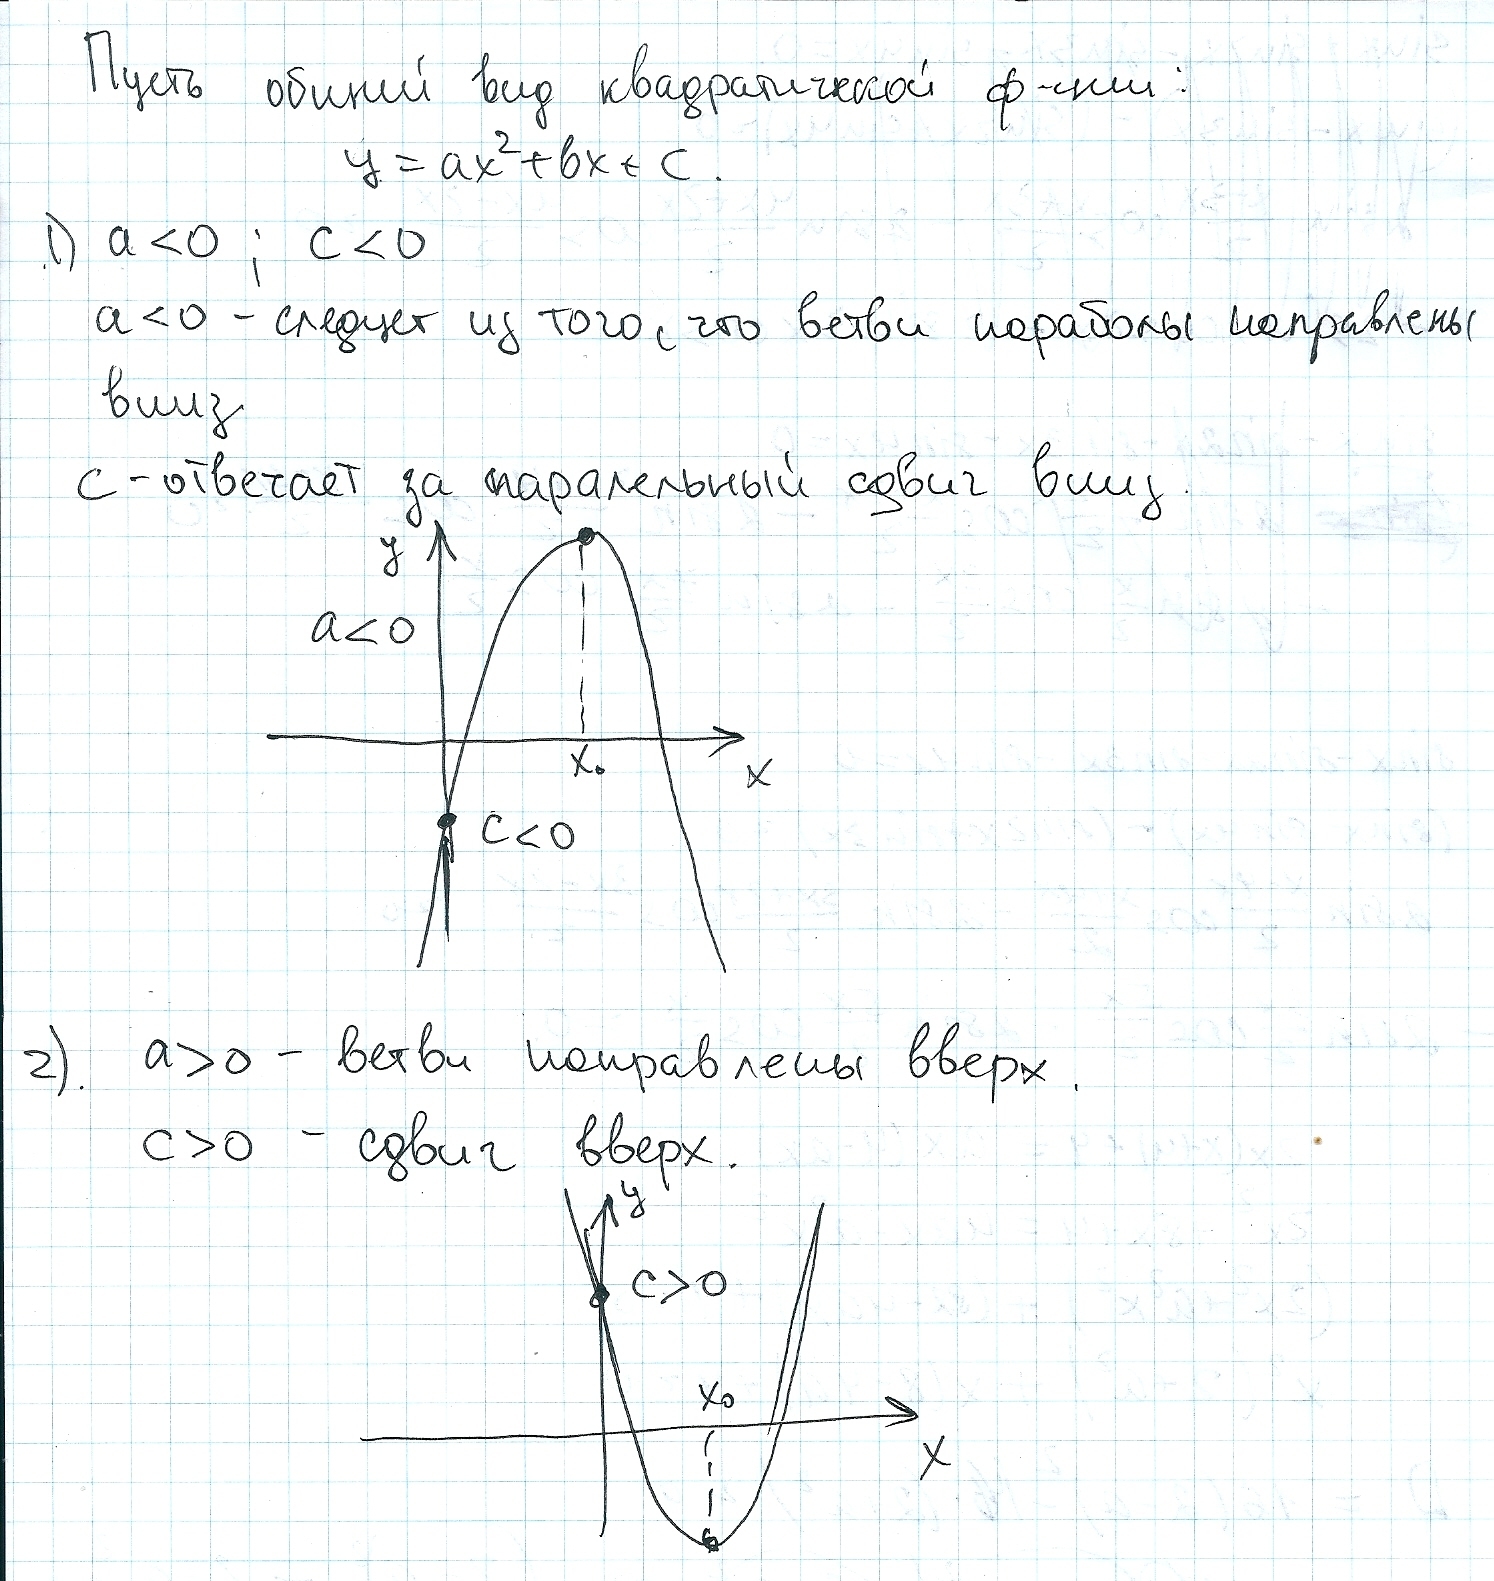 Пусть общий вид квадратической ф-ции:
y = ax²+bx+c.
1) a<0 ; c<0
a<0 - следует из того, что ветви параболы направлены
вниз
c - отвечает за паралельный сдвиг вниз.
y
a<0
x₀
x
c<0
2). a>0 - ветви направлены вверх.
c>0 - сдвиг вверх.
y
c>0
x₀
x